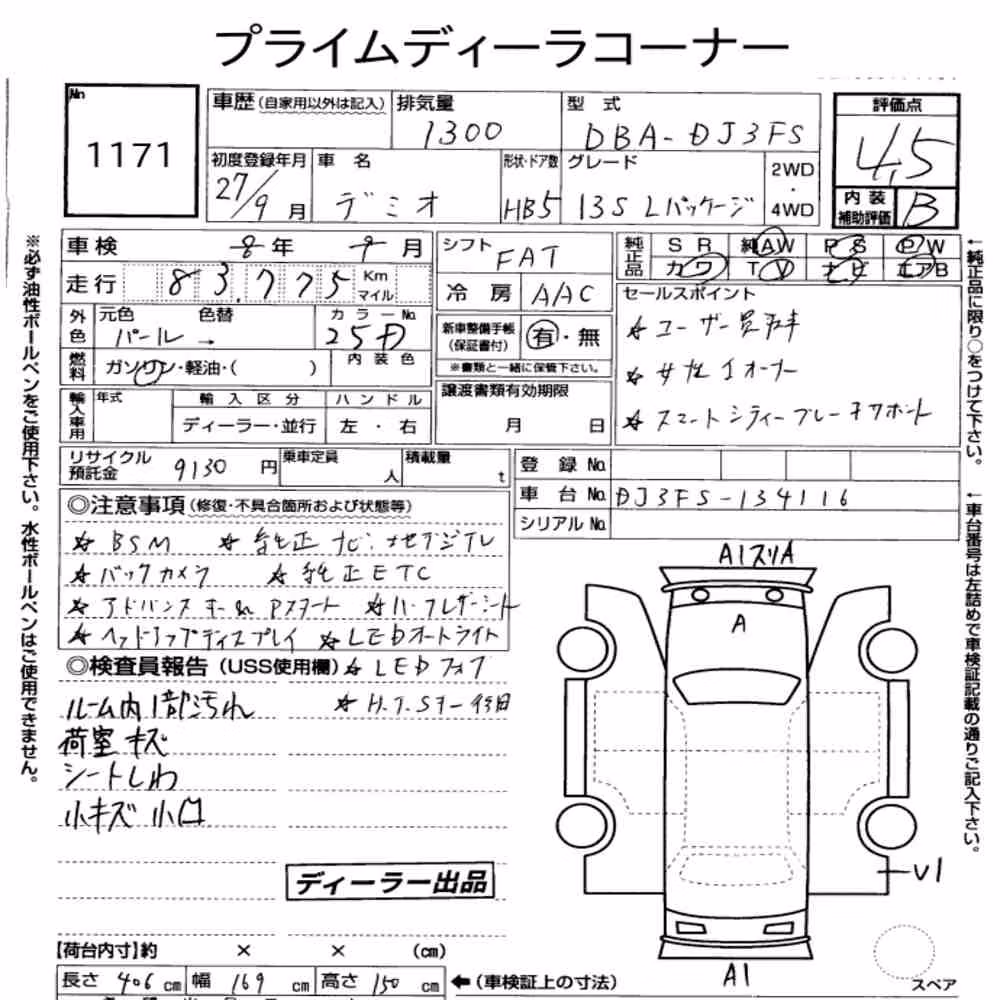 プライムディーラコーナー
No
1171
車歴 (自家用以外は記入)
排気量
1300
型 式
DBA-DJ3FS
評価点
4.5
内装
補助評価
B
初度登録年月
27/9 月
車 名
デミオ
形状・ドア数
HB5
グレード
13S Lパッケージ
2WD
・
4WD
車検 8年 9月
走行 83,775 Km
マイル
シフト
FAT
冷房 AAC
純正品
SR 純AW PS PW
カワ TV ナビ エアB
外色
元色 色替 カラーNo.
パール → 25D
燃料 ガソリン・軽油・( )
内装色
新車整備手帳
(保証書付)
有・無
※書類と一緒に保管下さい。
セールスポイント
☆ ユーザー買取車
☆ 女性1オーナー
☆ スマートシティーブレーキサポート
輸入車用
年式
輸入区分
ディーラー・並行
ハンドル
左・右
譲渡書類有効期限
月 日
リサイクル
預託金
9130 円
乗車定員
人
積載量
t
登録No.
車台No. DJ3FS-134116
シリアルNo.
◎注意事項 (修復・不具合箇所および状態等)
☆ BSM ☆ 純正ナビ・地デジTV
☆ バックカメラ ☆ 純正ETC
☆ アドバンスキー&Pスタート ☆ ハーフレザーシート
☆ ヘッドアップディスプレイ ☆ LEDオートライト
◎検査員報告 (USS使用欄) ☆ LEDフォグ
ルーム内1部汚れ
荷室キズ
シートしわ
小キズ 小凹
ディーラー出品
A1スリA
A
V1
A1
スペア
【荷台内寸】約 × × (cm)
長さ 406 cm 幅 169 cm 高さ 150 cm
←(車検証上の寸法)
※必ず油性ボールペンをご使用下さい。水性ボールペンはご使用できません。
←純正品に限り○をつけて下さい。
←車台番号は左詰めで車検証記載の通りご記入下さい。